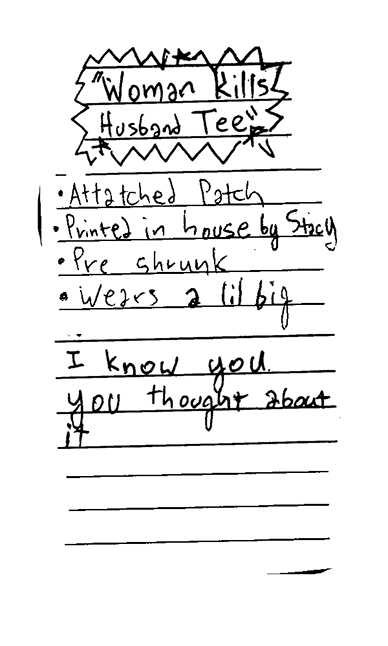 "Woman Kills
Husband Tee"
• Attatched Patch
• Printed in house by Stacy
• Pre shrunk
• Wears a lil big
I know you.
you thought about
it